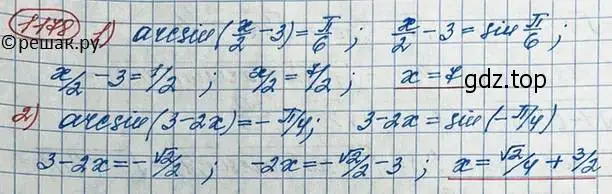 1178 1) arcsin(x/2 - 3) = π/6 ; x/2 - 3 = sin π/6 ;
©решак.ру
x/2 - 3 = 1/2 ; x/2 = 7/2 ; x = 7
gdz.top
2) arcsin(3-2x) = - π/4; 3-2x = sin(-π/4)
3-2x = -√2/2 ; -2x = -√2/2 - 3 ; x = √2/4 + 3/2